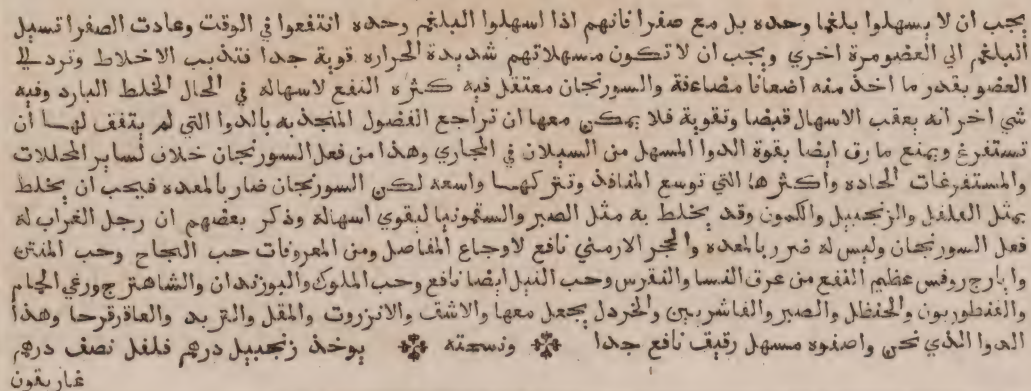 يجب ان لا يسهلوا بلغما وحده بل مع صفرا فانهم اذا اسهلوا البلغم وحده انتفعوا في الوقت وعادت الصفرا تسيل
البلغم الي العضو مرة اخري ويجب ان لا تكون مسهلاتهم شديدة الحراره قوية جدا فتذيب الاخلاط وترد الي
العضو بقدر ما اخذ منه اضعافا مضاعفة والسورنجان معتقل فيه كثره النفع لاسهاله في الحال الخلط البارد وفيه
شي اخر انه يعقب الاسهال قبضا وتقوية فلا يمكن معها ان تراجع الفضول المنجذبه بالدوا التي لم يتفق لهسا ان
تستفرغ ويمنع ما رق ايضا بقوة الدوا المسهل من السيلان في المجاري وهذا من فعل السورنجان خلاف لساير المحللات
والمستفرغات الحاده واكثرها التي توسع المنافذ وتتركهسا واسعه لكن السورنجان ضار بالمعده فيجب ان يخلط
بمثل الفلفل والزنجبيل والكمون وقد يخلط به مثل الصبر والسقمونيا ليقوي اسهاله وذكر بعضهم ان رجل الغراب له
فعل السورنجان وليس له ضرر بالمعده والحجر الارمني نافع لاوجاع المفاصل ومن المعروفات حب النجاح وحب المنتن
وايارج روفس عظيم النفع من عرق النسا والنقرس وحب النيل ايضا نافع وحب الملوك والبوزندان والشاهترج ورغي الحمام
والقنطوريون والحنظل والصبر والفاشرين والخردل يجعل معها والاشق والانزروت والمقل والتربد والعاقرقرحا وهذا
الدوا الذي نحن واصفوه مسهل رقيق نافع جدا ونسخته يوخذ زنجبيل درهم فلفل نصف درهم
غاريقون